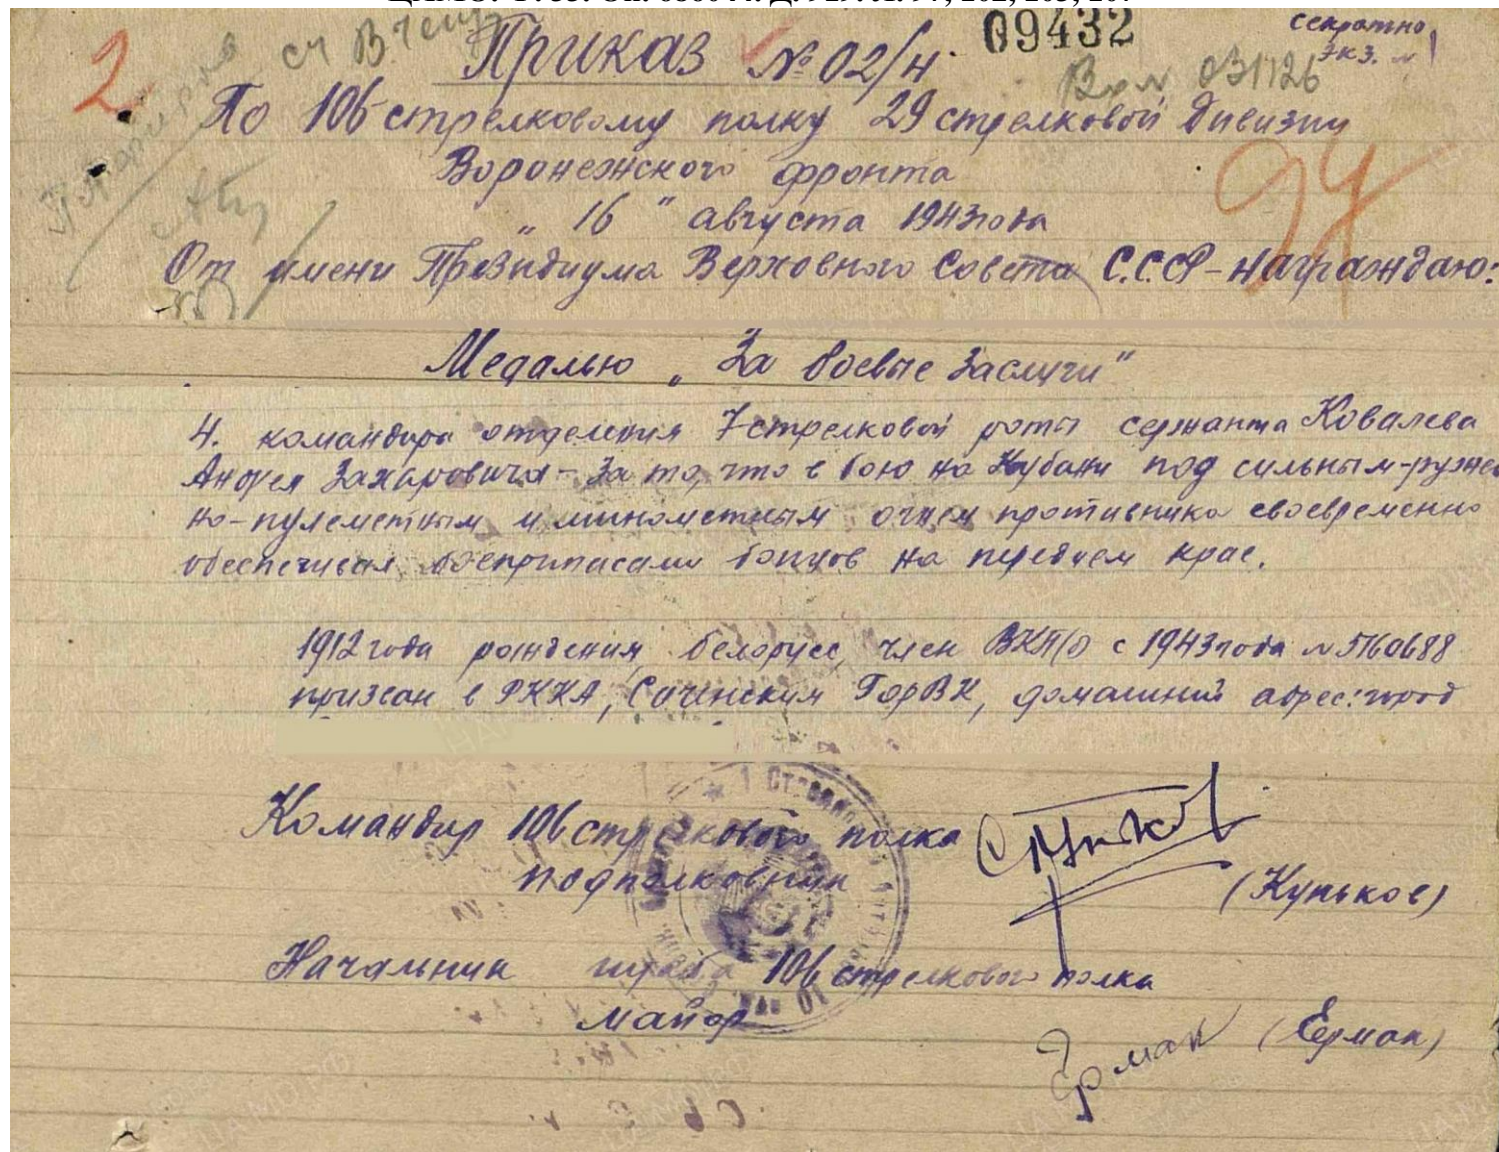 2.
Приказ № 02/н.
09432
Секретно
экз. №1
Вх № 031126
По 106 стрелковому полку 29 стрелковой Дивизии
Воронежского фронта
94
„ 16 " августа 1943 года
От имени Президиума Верховного Совета С.С.С.Р - награждаю:
Медалью „ За боевые Заслуги "
4. командира отделения 7 стрелковой роты сержанта Ковалева
Андрея Захаровича - За то, что в бою на Кубани под сильным - ружей
но - пулеметным и минометным огнем противника своевременно
обеспечивал боеприпасами бойцов на переднем крае.
1912 года рождения, белорусс, член ВКП(б) с 1943 года № 5160688
призван в РККА, Сочинским ГорВК, домашний адрес: город
Командир 106 стрелкового полка
Подполковник
(Куньков)
Начальник штаба 106 стрелкового полка
майор
Ермак (Ермак)